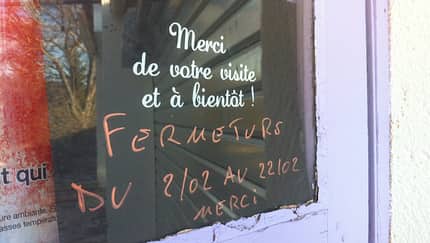 Merci
de votre visite
et à bientôt !
FERMETURS
DU 2/02 AU 22/02
MERCI
t qui
ure ambiante
asses températ